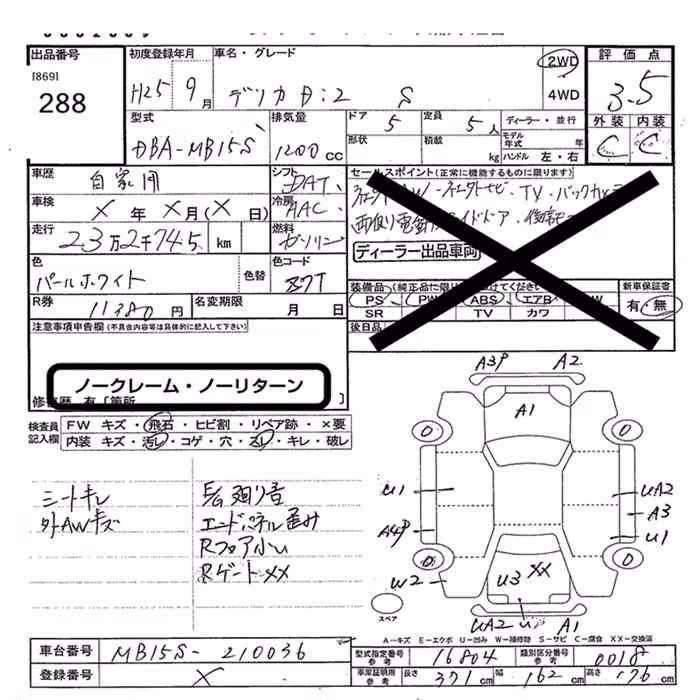 出品番号
[869]
288
初度登録年月
H25年9月
車名・グレード
デリカD:2 S
2WD
4WD
評価点
3.5
外装 内装
C C
型式
DBA-MB15S
排気量
1200cc
ドア 5
定員 5人
形状
積載 kg
ディーラー・並行
モデル年式 年
ハンドル 左・右
車歴
自家用
シフト DAT
車検
X年X月(X日)
冷房 AAC
走行
23万2千745km
燃料 ガソリン
色
パールホワイト
色替
色コード
Z7T
R券
11380円
名変期限
月 日
セールスポイント(正常に機能するものに限ります)
TV・バックカメラ
ディーラー出品車両
PS PW ABS エアB
SR TV カワ
新車保証書
有・無
後日品
注意事項申告欄(不具合内容等は具体的に記入して下さい)
ノークレーム・ノーリターン
修復歴 有〔箇所 〕
検査員記入欄
FW キズ・飛石・ヒビ割・リペア跡・×要
内装 キズ・汚レ・コゲ・穴・スレ・キレ・破レ
シートキレ
外AWキズ
E/G廻り音
エンドパネル歪み
Rフロア小U
Rゲートxx
A3P A2
A1
U1
UA2
A3
A4P
U1
W2
U3 XX
UA2 UP A1
スペア
A-キズ E-エクボ U-凹み W-補修跡 S-サビ C-腐食 XX-交換済
車台番号
MB15S-210036
登録番号
X
型式指定番号 参考
16804
類別区分番号 参考
0018
車庫証明用 参考
長さ 371cm 幅 162cm 高さ 176cm